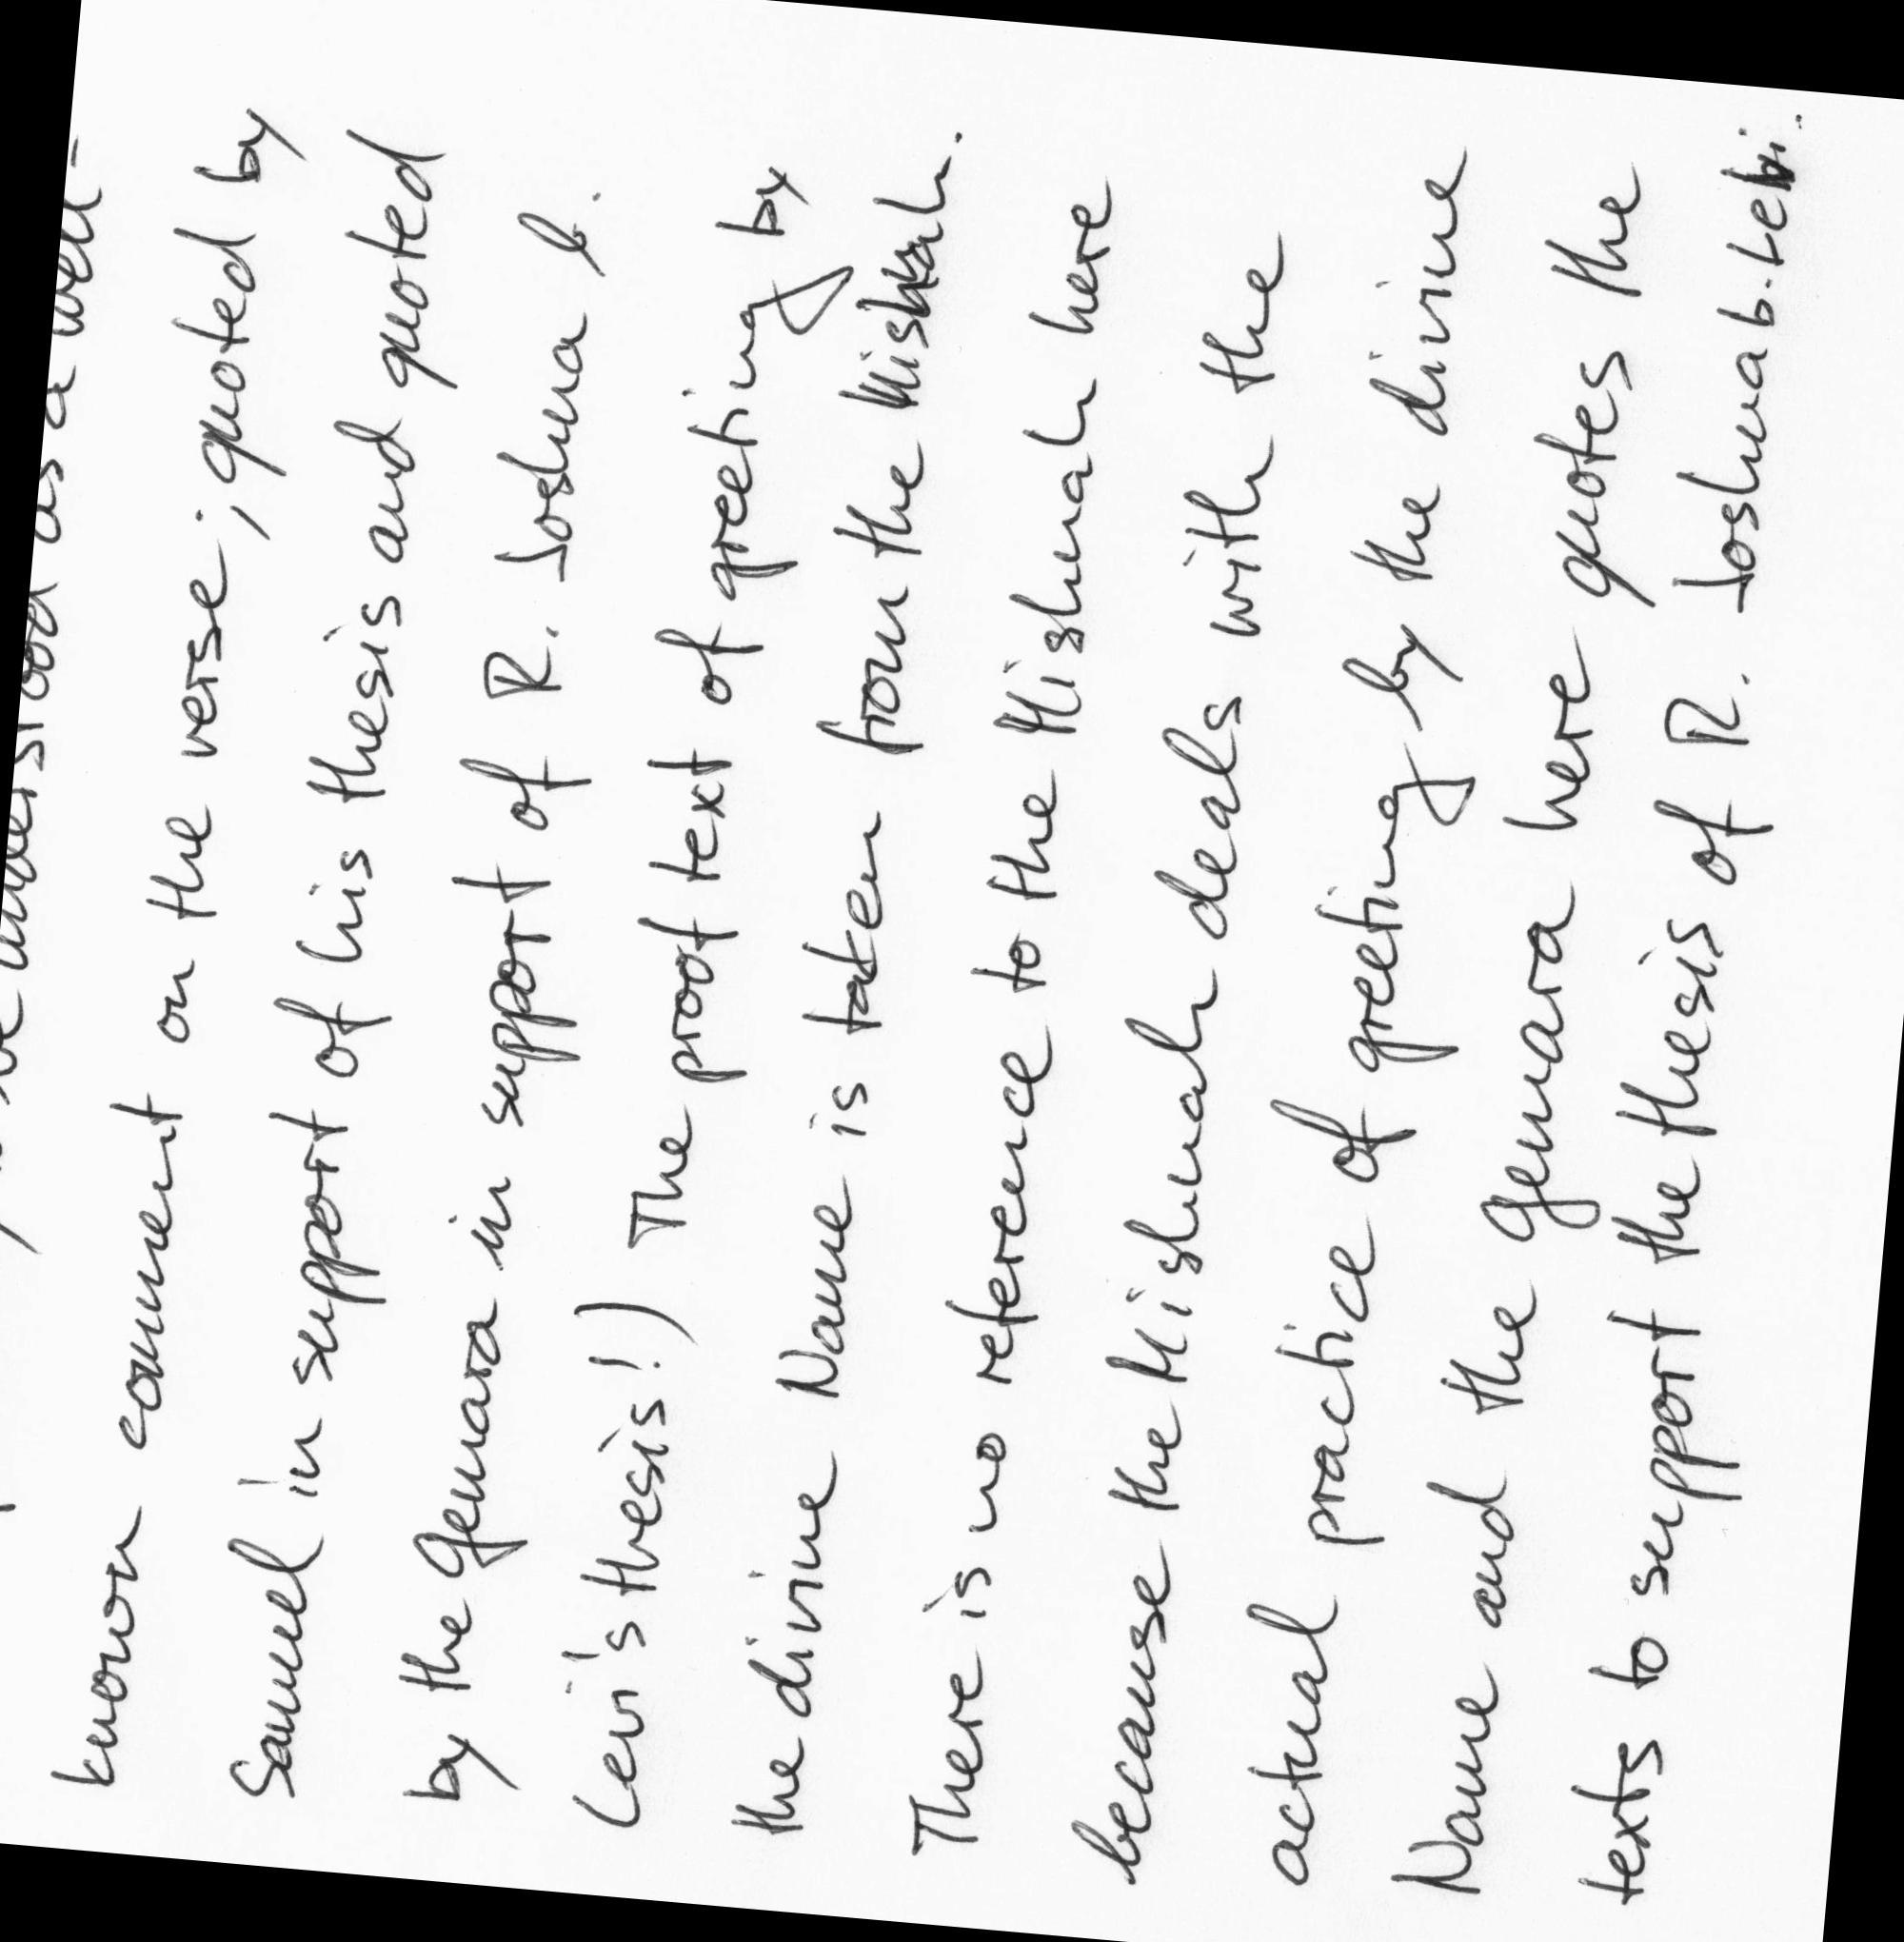 be understood as a well-
known comment on the verse; quoted by
Samuel in support of his thesis and quoted
by the Gemara in support of R. Joshua b.
Levi's thesis!) The proof text of greeting by
the divine Name is taken from the Mishnah.
There is no reference to the Mishnah here
because the Mishnah deals with the
actual practice of greeting by the divine
Name and the Gemara here quotes the
texts to support the thesis of R. Joshua b. Levi.